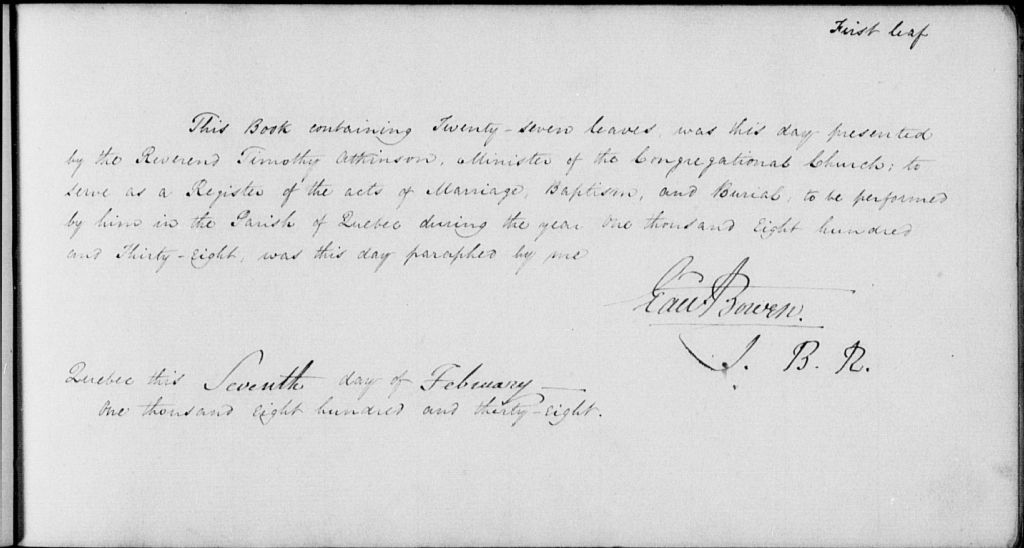 First leaf
This Book containing Twenty-seven leaves, was this day presented
by the Reverend Timothy Atkinson, Minister of the Congregational Church; to
serve as a Register of the acts of Marriage, Baptism, and Burial, to be performed
by him in the Parish of Quebec during the year One thousand Eight hundred
and Thirty-Eight, was this day paraphed by me
Edwd Bowen.
J. B. R.
Quebec this Seventh day of February —
One thousand Eight hundred and thirty-Eight.